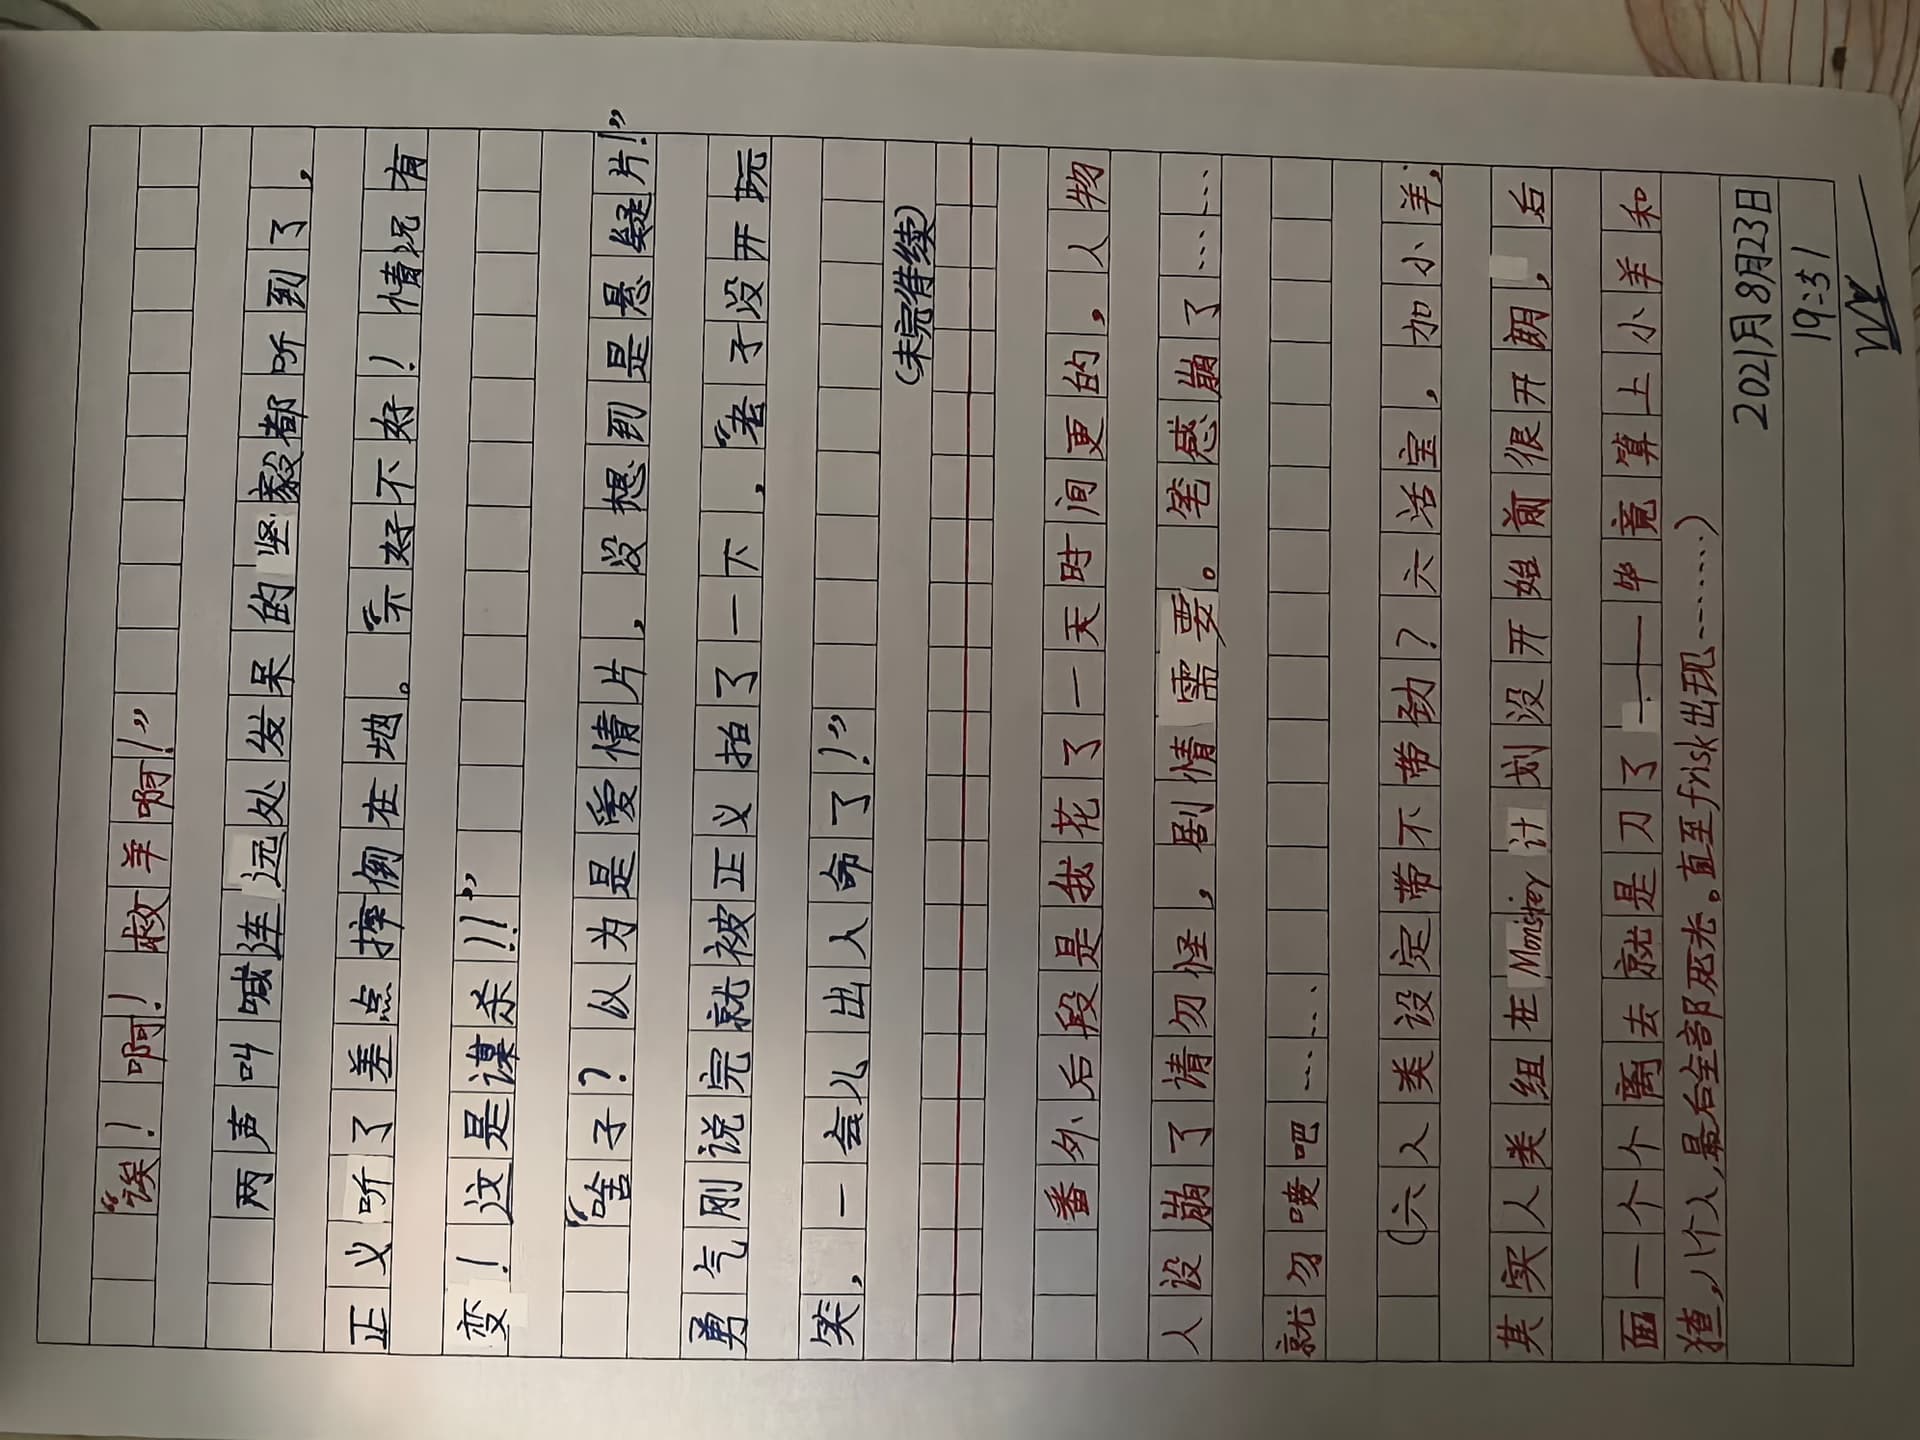 “诶！啊！救羊啊！”
两声叫喊连远处发呆的坚毅都听到了，
正义听了差点摔倒在地。“不好不好！情况有
变！这是谋杀！！”
“啥子？以为是爱情片，没想到是悬疑片！”
勇气刚说完就被正义拍了一下，“老子没开玩
笑，一会儿出人命了！”
（未完待续）
番外后段是我花了一天时间更的，人物
人设崩了请勿怪，剧情需要。笔感崩了……
就勿喷吧……
（六人类设定带不带劲？六活宝，加小羊，
其实人类组在Monster计划没开始前很开朗，后
面一个个离去就是刀了——毕竟算上小羊和
猹，八个人，最后全部死光。直至frisk出现……）
2021月8月23日
19:31